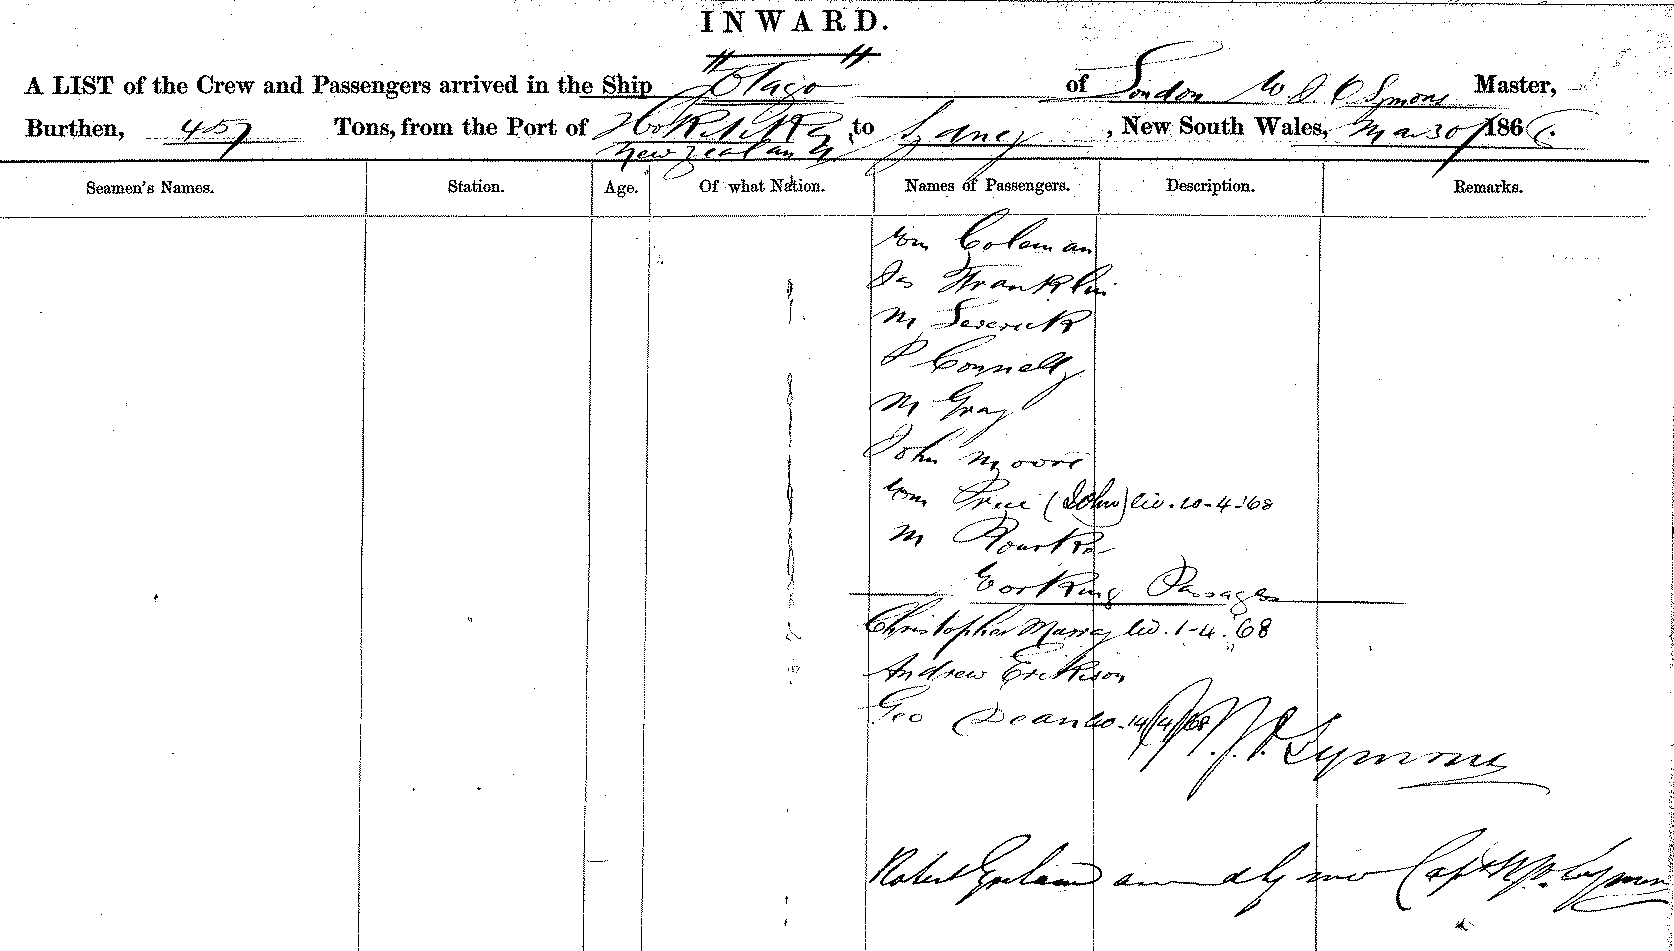 INWARD.
A LIST of the Crew and Passengers arrived in the Ship "Otago" of London W J P Symons Master,
Burthen, 457 Tons, from the Port of Hokitika New Zealand to Sydney, New South Wales, Mar 30 / 186
Seamen's Names. Station. Age. Of what Nation. Names of Passengers. Description. Remarks.
Wm Coleman
Jas Franklin
M
P Connelly
M Gray
John Moore
Wm Price (John) lic. 10-4-'68
M Rourke
Working Passages
Christopher Murray lic. 1-4-'68
Andrew Erikson
Geo Dean 14/4/68
W. J. P. Symons
Robert by me Capt Symons